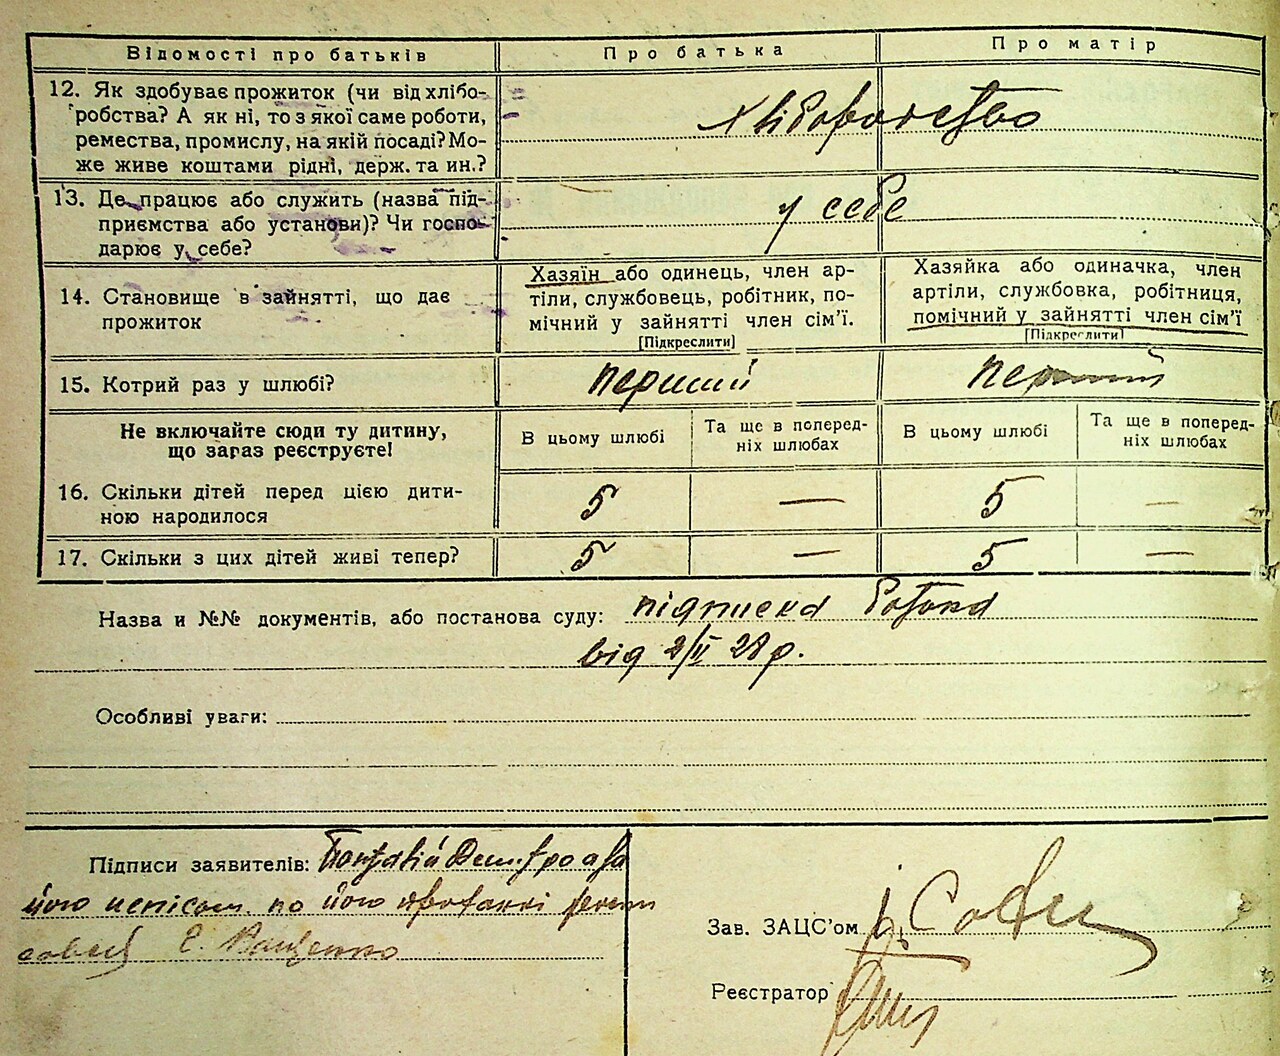 Відомості про батьків
Про батька
Про матір
12. Як здобуває прожиток (чи від хлібо-
робства? А як ні, то з якої саме роботи,
ремества, промислу, на якій посаді? Мо-
же живе коштами рідні, держ. та ин.?
хліборобство
13. Де працює або служить (назва під-
приємства або установи)? Чи госпо-
дарює у себе?
у себе
14. Становище в зайнятті, що дає
прожиток
Хазяїн або одинець, член ар-
тіли, службовець, робітник, по-
мічний у зайнятті член сім'ї.
[Підкреслити]
Хазяйка або одиначка, член
артіли, службовка, робітниця,
помічний у зайнятті член сім'ї
[Підкреслити]
15. Котрий раз у шлюбі?
перший
перший
Не включайте сюди ту дитину,
що зараз реєструєте!
В цьому шлюбі
Та ще в поперед-
ніх шлюбах
В цьому шлюбі
Та ще в поперед-
ніх шлюбах
16. Скільки дітей перед цією дити-
ною народилося
5 — 5 —
17. Скільки з цих дітей живі тепер?
5 — 5 —
Назва и №№ документів, або постанова суду: підписка батька
від 2/II 28 р.
Особливі уваги:
Підписи заявителів:
його
Є. Ващенко
Зав. ЗАЦС'ом
Реєстратор